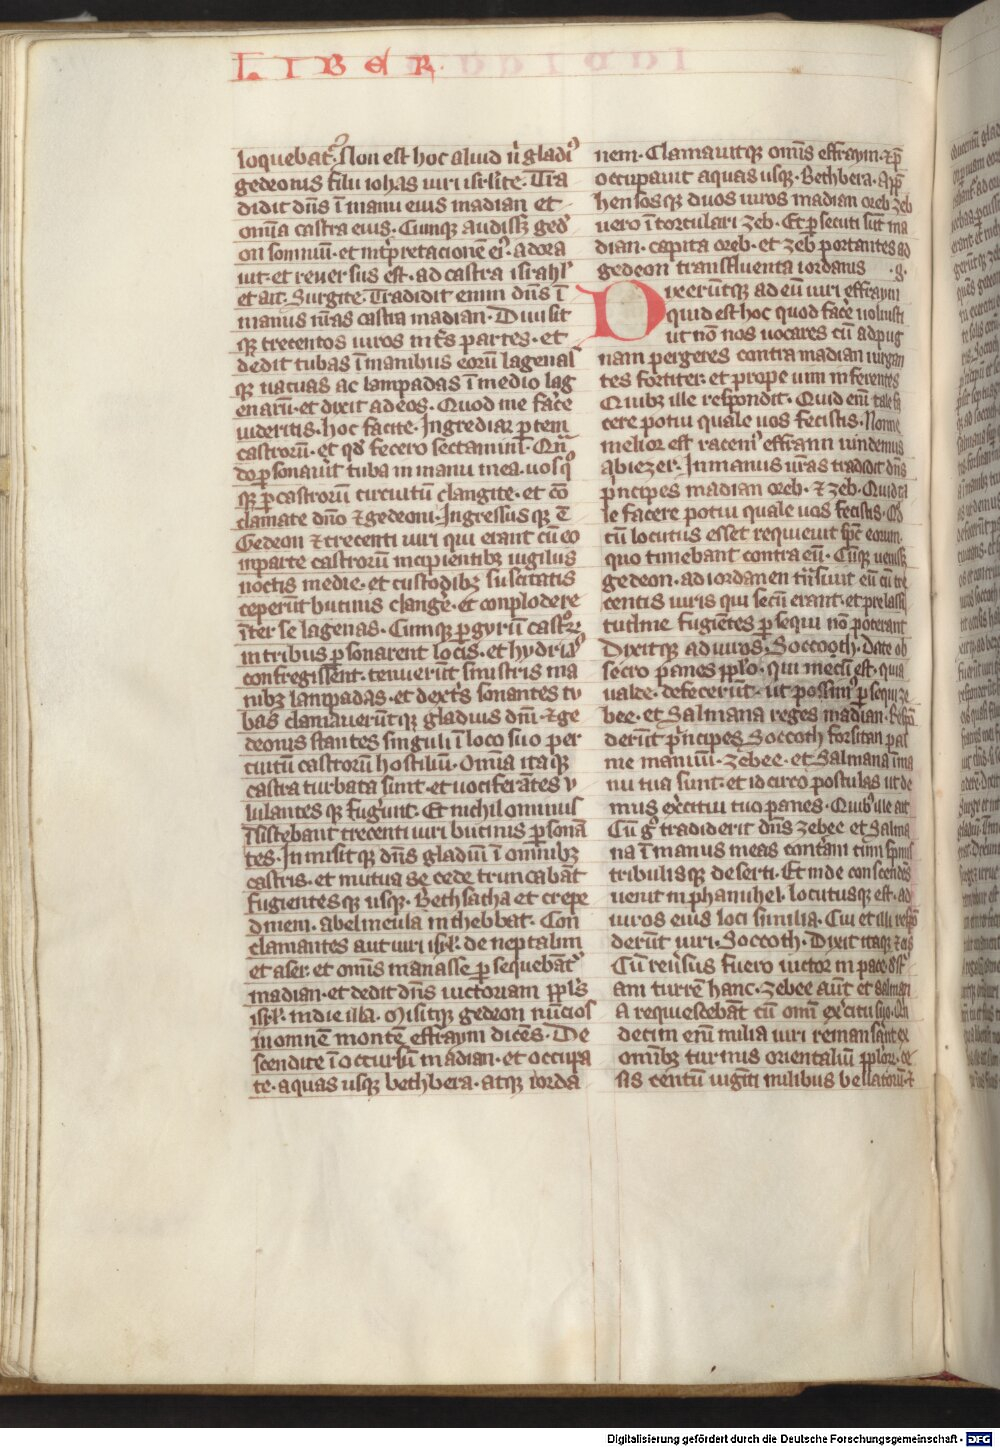 LIBER
loquebat᷑. Non est hoc aliud n̄ gladiꝰ
gedeonis filii iohas uiri isr̄lite. Tra
didit dn̄s ī manu eius madian et
om̄ia castra eius. Cumqꝫ audissꝫ ged̄
on somniū. et int̄pretacionem eiꝰ. adora
uit. et reuersus est. ad castra israhl̓
et ait. Surgite. Tradidit enim dn̄s ī
manus nr̄as castra madian. Diuisit
qꝫ trecentos uiros in tr̄s partes. et
dedit tubas ī manibus eorū lagenas
qꝫ uacuas ac lampadas ī medio lag
enarū. et dixit ad eos. Quod me fac̄e
uideritis. hoc facite. Ingrediar ꝑtem
castrorū. et qd̓ fecero sectamini. Qn̄
do ꝑsonauīt tuba in manu mea. uos qꝫ
qꝫ ꝑ castrorū circuitū clangite. et cō
clamate dn̄o ⁊ gedeoni. Ingressus qꝫ ē
Gedeon ⁊ trecenti uiri qui erant cū eo
in parte castrorū incipientibꝫ uigiliis
noctis medie. et custodibꝫ suscitatis
ceperūt bucinis clang̓e. et conplodere
īter se lagenas. Cumqꝫ ꝑ gyrū castroꝝ
in tribus ꝑsonarent locis. et hydriaꝰ
confregissent. tenuerūt sinistris ma
nibꝫ lampadas. et dext̓s sonantes tu
bas clamauerūtqꝫ gladius dn̄i. ⁊ ge
deonis stantes singuli ī loco suo per
cuitū castrorū hostiliū. Om̄ia itaqꝫ
castra turbata sunt. et uociferātes v
lulantes qꝫ fugerūt. Et nichilominus
īsistebant trecenti uiri bucinis ꝑsonā
tes. Inmisitqꝫ dn̄s gladiū ī om̄ibꝫ
castris. et mutua se cede truncabāt
fugientesqꝫ usqꝫ. Bethsatha et crepe
dinem. abelmeula in thebbat. Con
clamantes aut uiri isr̄l. de neptalim
et aser. et om̄is manasse ꝑsequebāt᷑
madian. et dedit dn̄s uictoriam ppl̓s
isr̄l. in die illa. Misitqꝫ gedeon nūcios
in omnē montē effraym dicēs. De
scendite ī occursū madian. et occupa
te. aquas usqꝫ bethbera. atqꝫ iorda
nem. Clamauitqꝫ om̄is effraym. ⁊ p̄
occupauit aquas usqꝫ. Bethbera. App̄
hensosqꝫ duos uiros madian oreb zeb
uero ī torculari zeb. Et ꝑsecuti sūt ma
dian. capita oreb. et zeb portantes ad
gedeon transfluenta iordanis .g.
Dixerūtqꝫ ad eū uiri effraym
quid est hoc quod fac̄e uoluisti
ut nō nos uocares cū ad pug
nam pergeres contra madian iurgan
tes fortiter. et prope uim inferentes
Quibꝫ ille respondit. Quid eni tale fa
cere potui quale uos fecistis. Nonne
melior est racemꝰ effraim uindemiis
abiezer. In manus ur̄as tradidit dn̄s
p̄ncipes madian oreb. ⁊ zeb. Quid ta
le facere potui quale uos fecistis. Qd̓
cū locutus esset requieuit sp̄c eorum.
quo timebant contra eū. Cūqꝫ uenissꝫ
gedeon. ad iordanen tn̄siuit eū cū tre
centis uiris qui secū erant. et pre lassi
tudine fugiētes ꝑsequi nō poterant
Dixitqꝫ ad uiros. Soccoth. Date ob
secro panes ppl̓o. qui mecū est. quia
ualde. defecerūt. ut possimꝰ ꝑsequi ze
bee. et Salmana reges madian. Respō
derūt p̄ncipes Soccoth forsitan pal
me manuū. Zebee. et Salmana ī ma
nu tua sunt. et idcirco postulas ut de
mus ex̓citui tuo panes. Quibꝰ ille ait
Cū g̊ tradiderit dn̄s zebee et Salma
na ī manus meas cont̓am cum spinis
tribulisqꝫ deserti. Et inde conscendēs
uenit in phanuhel. locutusqꝫ est. ad
uiros eius loci similia. Cui et illi respō
derūt uiri. Soccoth. Dixit itaqꝫ ⁊ eis
Cū reūsus fuero uictor in pace. dest᷑
am turrē hanc. Zebee aūt et Salman
a requiescebāt cū omī ex̓citu suo. Qn
decim enī milia uiri remanserāt ex
omībꝫ turmis orientaliū ppl̓oꝝ. ce
sis centū uigīti milibus bellatorū. ⁊
Digitalisierung gefördert durch die Deutsche Forschungsgemeinschaft - DFG